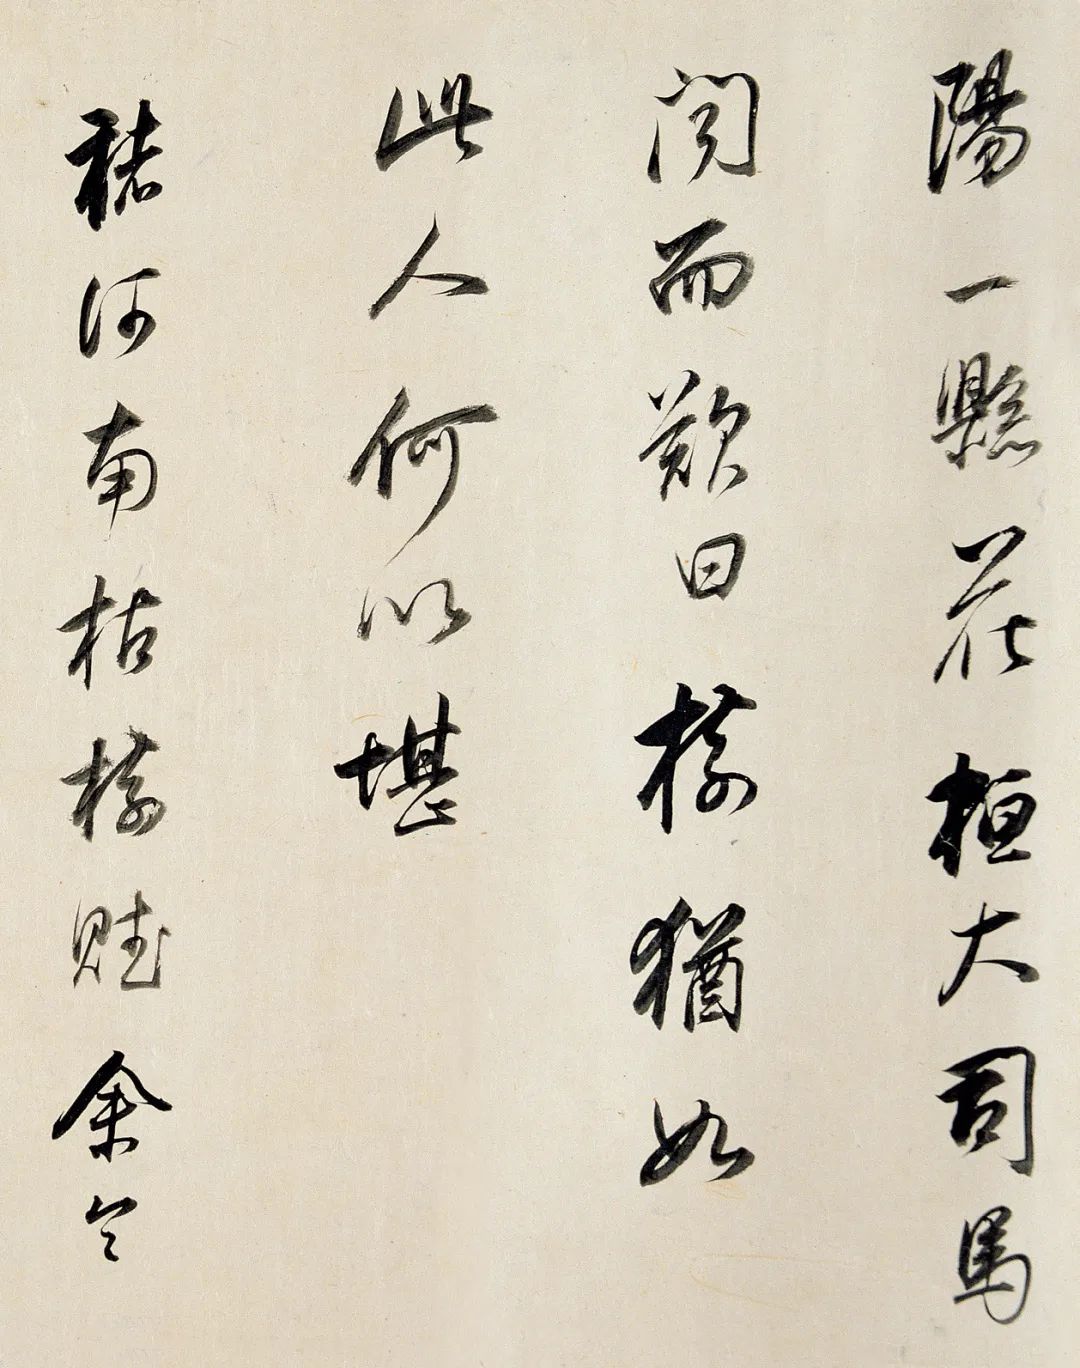 陽一縣花桓大司馬
聞而歎曰樹猶如
此人何以堪
褚河南枯樹賦余